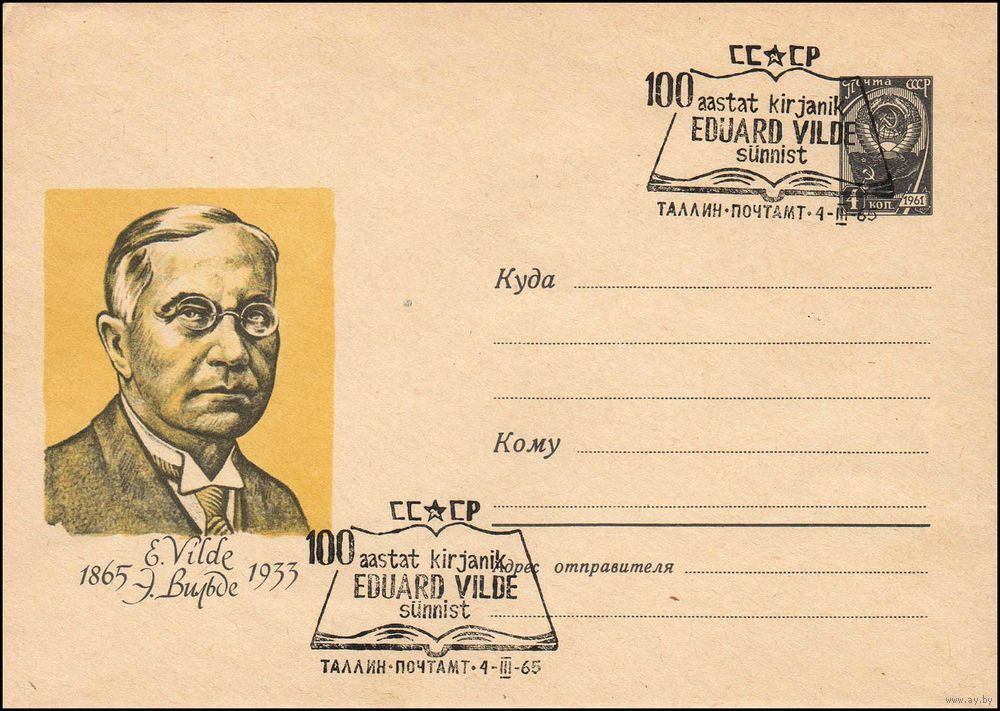 СС★СР
100 aastat kirjanik
EDUARD VILDE
sünnist
ТАЛЛИН·ПОЧТАМТ·4-III-65
Почта СССР
4 коп. 1961
Куда
Кому
Адрес отправителя
E. Vilde
1865 1933
Э. Вильде
СС★СР
100 aastat kirjanik
EDUARD VILDE
sünnist
ТАЛЛИН·ПОЧТАМТ·4-III-65
www.ay.by